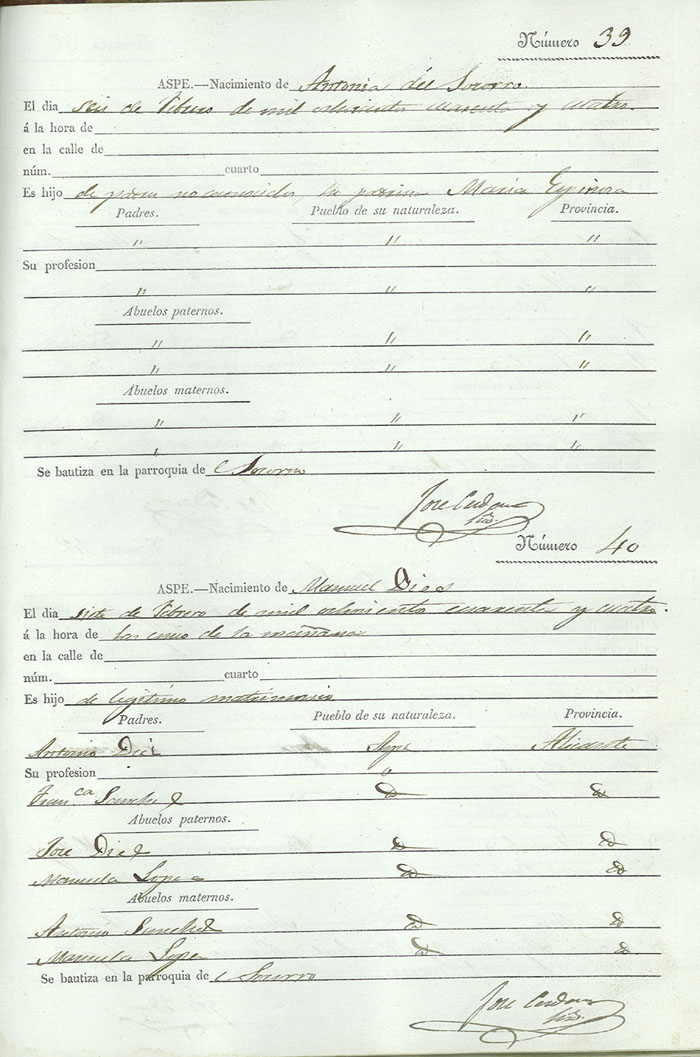 Número 39
ASPE.—Nacimiento de Antonia del Socorro
El dia seis de Febrero de mil ochocientos cuarenta y cuatro
á la hora de
en la calle de
núm. cuarto
Es hijo de padres no conocidos, la María Espinosa
Padres. Pueblo de su naturaleza. Provincia.
" " "
Su profesion
" " "
Abuelos paternos.
" " "
" " "
Abuelos maternos.
" " "
" " "
Se bautiza en la parroquia de Socorro
Jose Cerdan
Número 40
ASPE.—Nacimiento de Manuel Dies
El dia siete de Febrero de mil ochocientos cuarenta y cuatro.
á la hora de las cinco de la mañana
en la calle de
núm. cuarto
Es hijo de legitimo matrimonio
Padres. Pueblo de su naturaleza. Provincia.
Antonio Diez Aspe Alicante
Su profesion
Fran.ca Sanchez
Abuelos paternos.
Jose Diez
Manuela Lopez
Abuelos maternos.
Antonio Sanchez
Manuela Lopez
Se bautiza en la parroquia de Socorro
Jose Cerdan